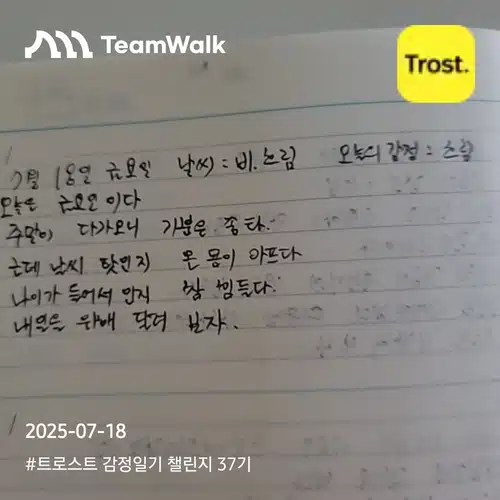 TeamWalk
Trost.
7월 18일 금요일 날씨 : 비.흐림 오늘의 감정 : 흐림
오늘은 금요일이다
주말이 다가오니 기분은 좋타.
근데 날씨 탓인지 온 몸이 아프다
나이가 들어서 인지 쌀 힘들다.
내일을 위해 달려 보자.
2025-07-18
#트로스트 감정일기 챌린지 37기